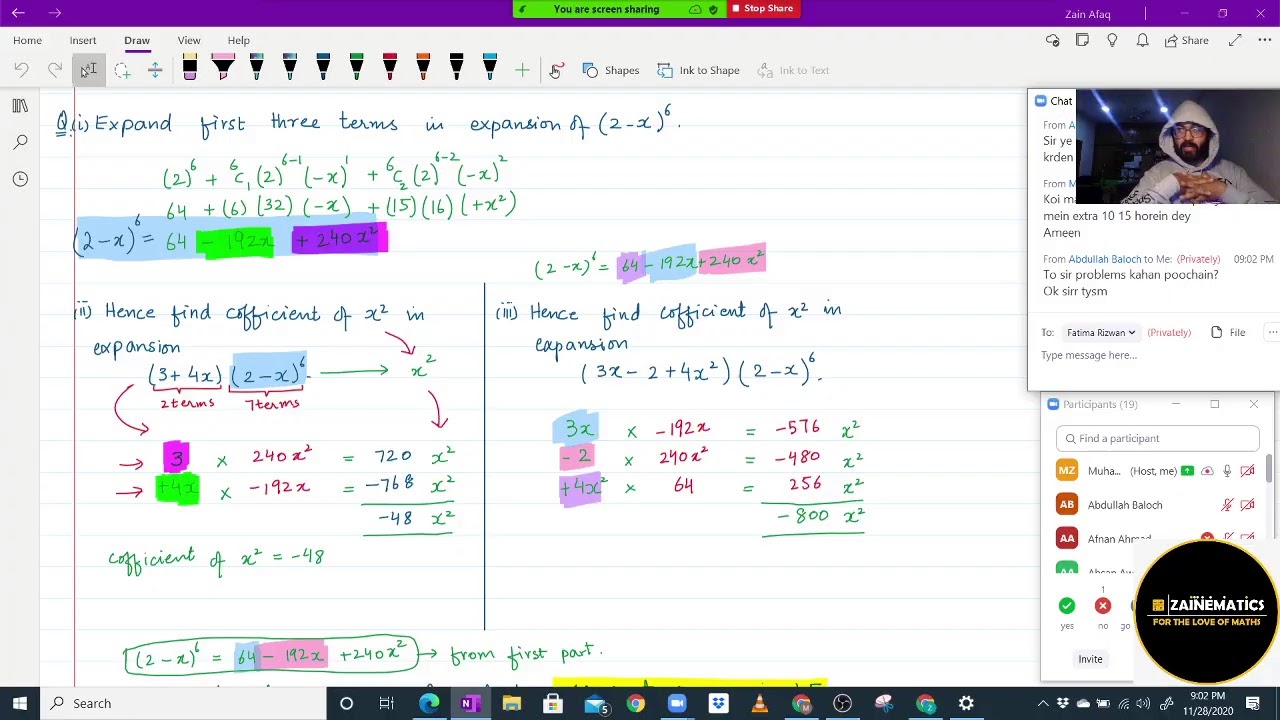 You are screen sharing
Stop Share
Zain Afaq
Home Insert Draw View Help
Share
Shapes Ink to Shape Ink to Text
Q.(i) Expand first three terms in expansion of (2-x)⁶.
(2)⁶ + ⁶C₁ (2)⁶⁻¹ (-x)¹ + ⁶C₂ (2)⁶⁻² (-x)²
64 + (6) (32) (-x) + (15) (16) (+x²)
(2-x)⁶ = 64 - 192x + 240x²
(2-x)⁶ = 64 - 192x + 240x²
(ii) Hence find cofficient of x² in
expansion
(3+4x) (2-x)⁶. → x²
2terms 7terms
→ 3 × 240x² = 720 x²
→ +4x × -192x = -768 x²
-48 x²
cofficient of x² = -48
(iii) Hence find cofficient of x² in
expansion
(3x - 2 + 4x²) (2-x)⁶.
3x × -192x = -576 x²
-2 × 240x² = -480 x²
+4x² × 64 = 256 x²
-800 x²
(2-x)⁶ = 64 - 192x + 240x² → from first part.
Chat
From A
Sir ye
krden
From M
Koi ma
mein extra 10 15 horein dey
Ameen
From Abdullah Baloch to Me: (Privately) 09:02 PM
To sir problems kahan poochain?
Ok sirr tysm
To: Fatima Rizwan (Privately) File
Type message here...
Participants (19)
Find a participant
MZ Muha... (Host, me)
AB Abdullah Baloch
AA Afnan Ahmad
AA
1
yes no go
Invite
ZAINEMATICS
FOR THE LOVE OF MATHS
Search
9:02 PM
11/28/2020